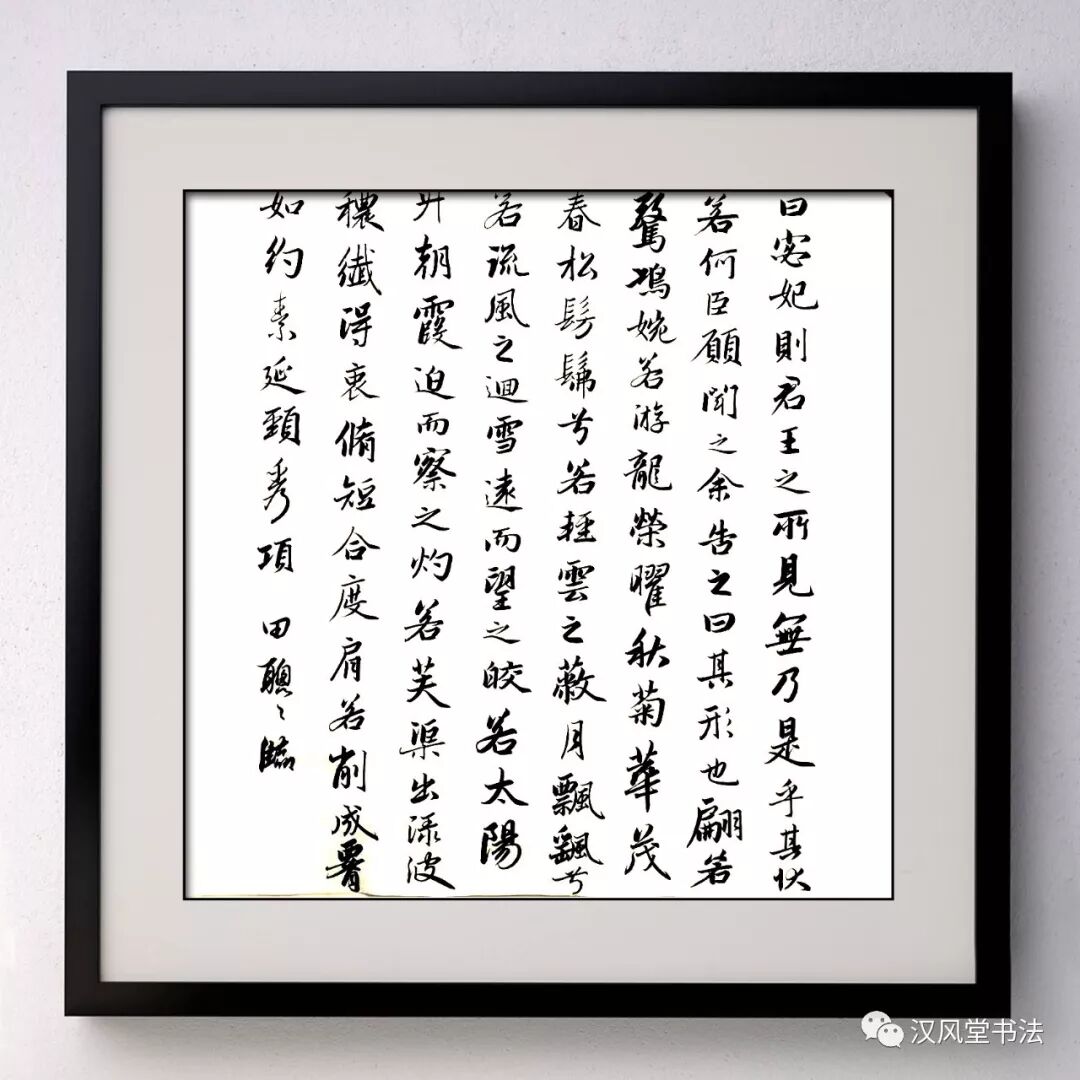 曰宓妃則君王之所見無乃是乎其狀
若何臣願聞之余告之曰其形也翩若
驚鴻婉若游龍榮曜秋菊華茂
春松髣髴兮若輕雲之蔽月飄飖兮
若流風之迴雪遠而望之皎若太陽
升朝霞迫而察之灼若芙渠出渌波
穠纖得衷脩短合度肩若削成署
如約素延頸秀項 田聰〻臨
汉风堂书法